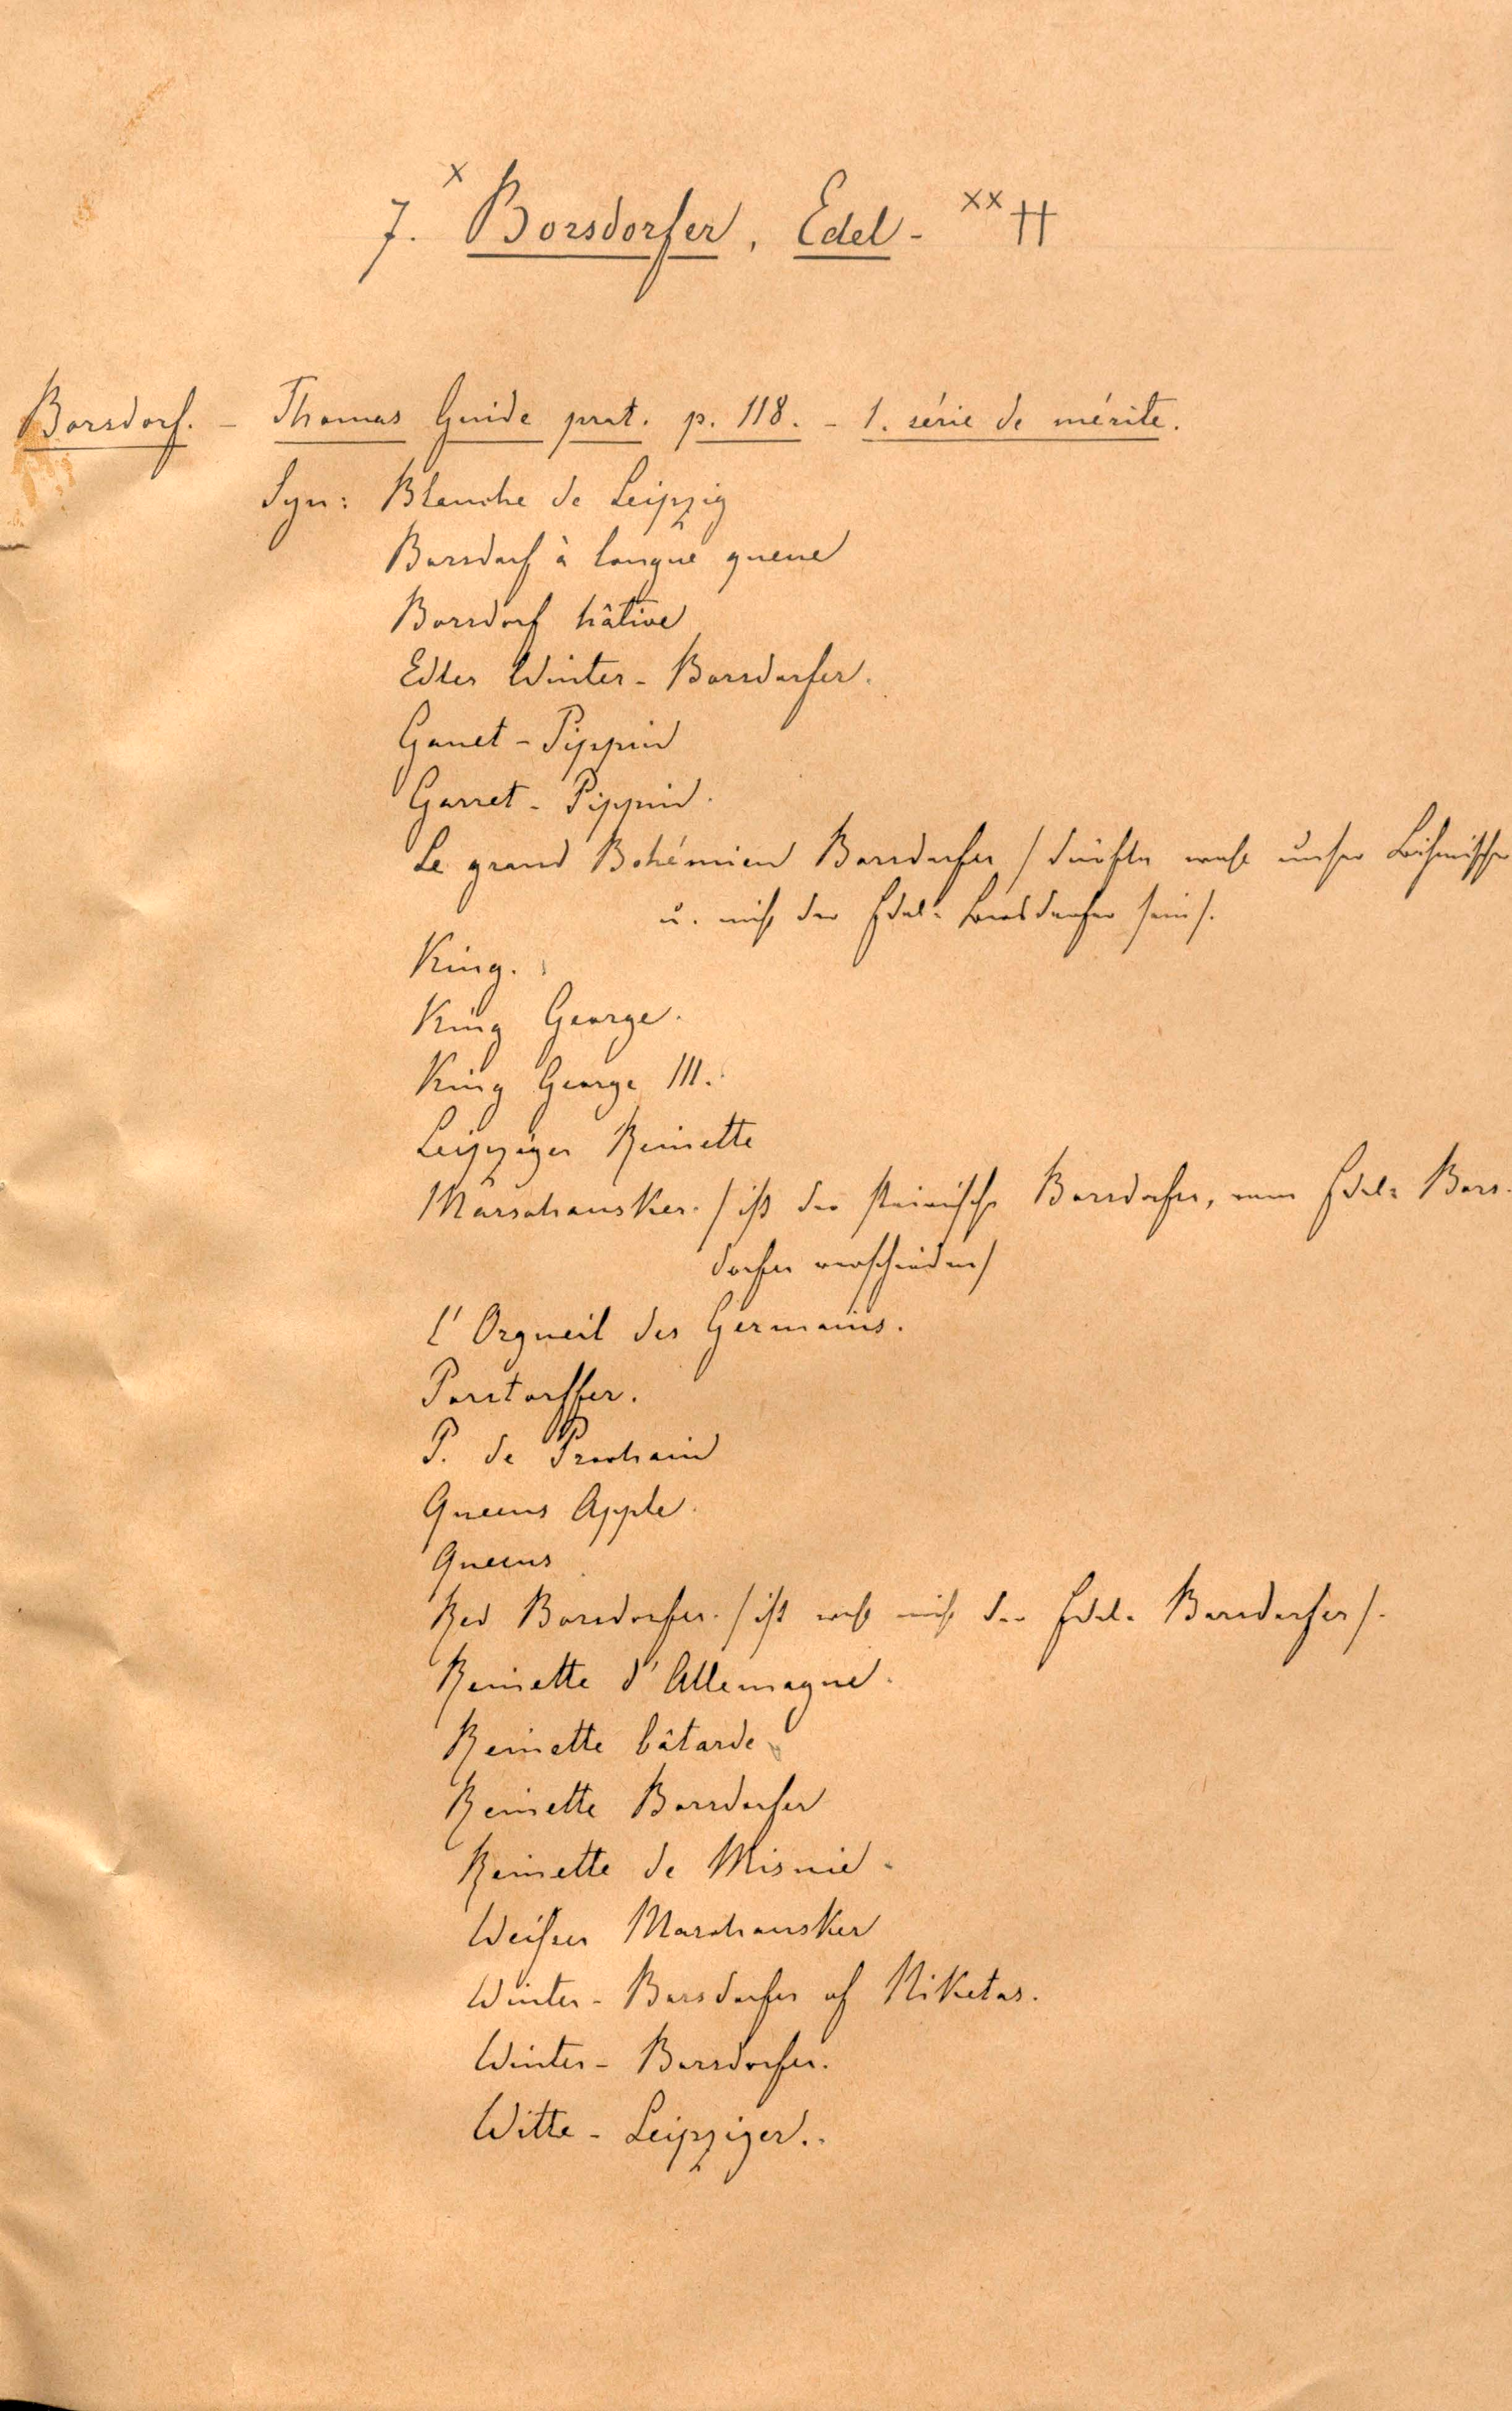 7. x Borsdorfer, Edel- xx ††
Borsdorf. - Thomas Guide prat. p. 118. - 1. série de mérite.
Syn: Blanche de Leipzig
Borsdorf à longue queue
Borsdorf hâtive
Edler Winter-Borsdorfer.
Ganet-Pippin
Garret-Pippin.
Le grand Bohémien Borsdorfer /dürfte wohl unser Böhmischer
u. nicht der Edel-Borsdorfer sein/.
King.
King George.
King George III.
Leipziger Reinette
Marschansker. /ist der steirische Borsdorfer, vom Edel-Bors-
dorfer verschieden/
l'Orgueil des Germains.
Porstorffer.
P. de Prochain
Queens Apple.
Queens
Red Borsdorfer. /ist wohl nicht der Edel-Borsdorfer/.
Reinette d'Allemagne.
Reinette bâtarde
Reinette Borsdorfer
Reinette de Misnie.
Weißer Marschansker
Winter-Borsdorfer of Niketas.
Winter-Borsdorfer.
Witte-Leipziger.